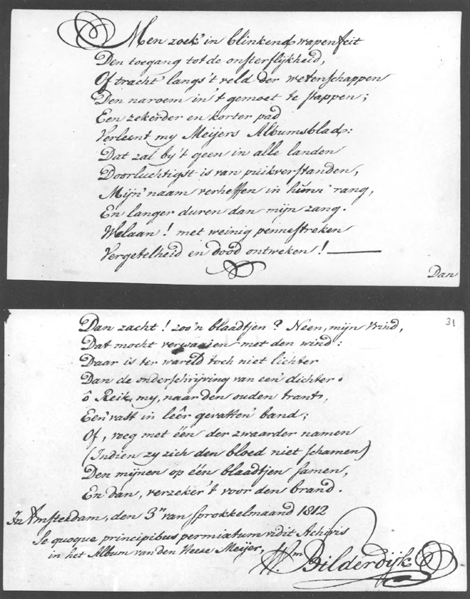 Men zoek' in blinkend wapenfeit
Den toegang tot de onsterflijkheid,
Of tracht' langs 't veld der wetenschappen
Den naroem in 't gemoet te stappen;
Een zekerder en korter pad
Verleent my Meijers Albumsblad:
Dat zal by 't geen in alle landen
Doorluchtigst is van puikverstanden,
Mijn' naam verheffen in hunn' rang,
En langer duren dan mijn zang.
Welaan! met weinig pennestreken
Vergetelheid en dood ontweken! —
Dan
31
Dan zacht! zoo'n blaadtjen? Neen, mijn vrind,
Dat mocht verwaajen met den wind:
Daar is ter wareld toch niet lichter
Dan de onderschrijving van een' dichter.
ô Reik my, naar den ouden trant,
Een' vast in leêr gevatten band;
Of, voeg met één der zwaarder namen
(Indien zy zich den bloed niet schamen)
Den mijnen op één blaadtjen samen,
En dan, verzeker 't voor den brand.
In Amsterdam, den 3n van Sprokkelmaand 1812
Se quoque principibus permixtum Achivis
in het Album van den Heere Meijer,
Wm Bilderdijk